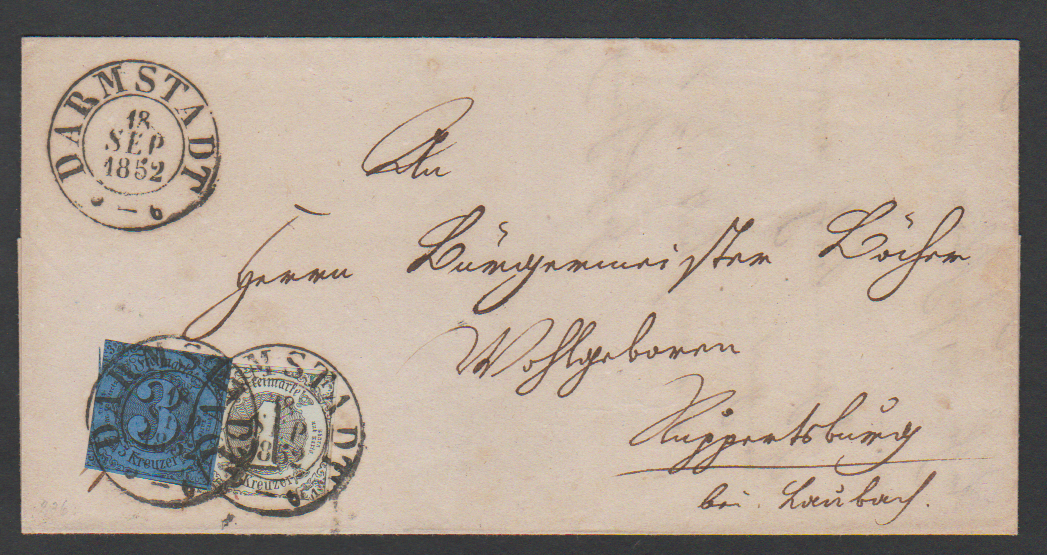 DARMSTADT
18
SEP
1852
An
Herrn Bürgermeister Löcher
Wohlgeboren
Ruppertsburg
bei Laubach.
DARMSTADT
3
3 Kreuzer
DARMSTADT
Freimarke
1
Kreuzer